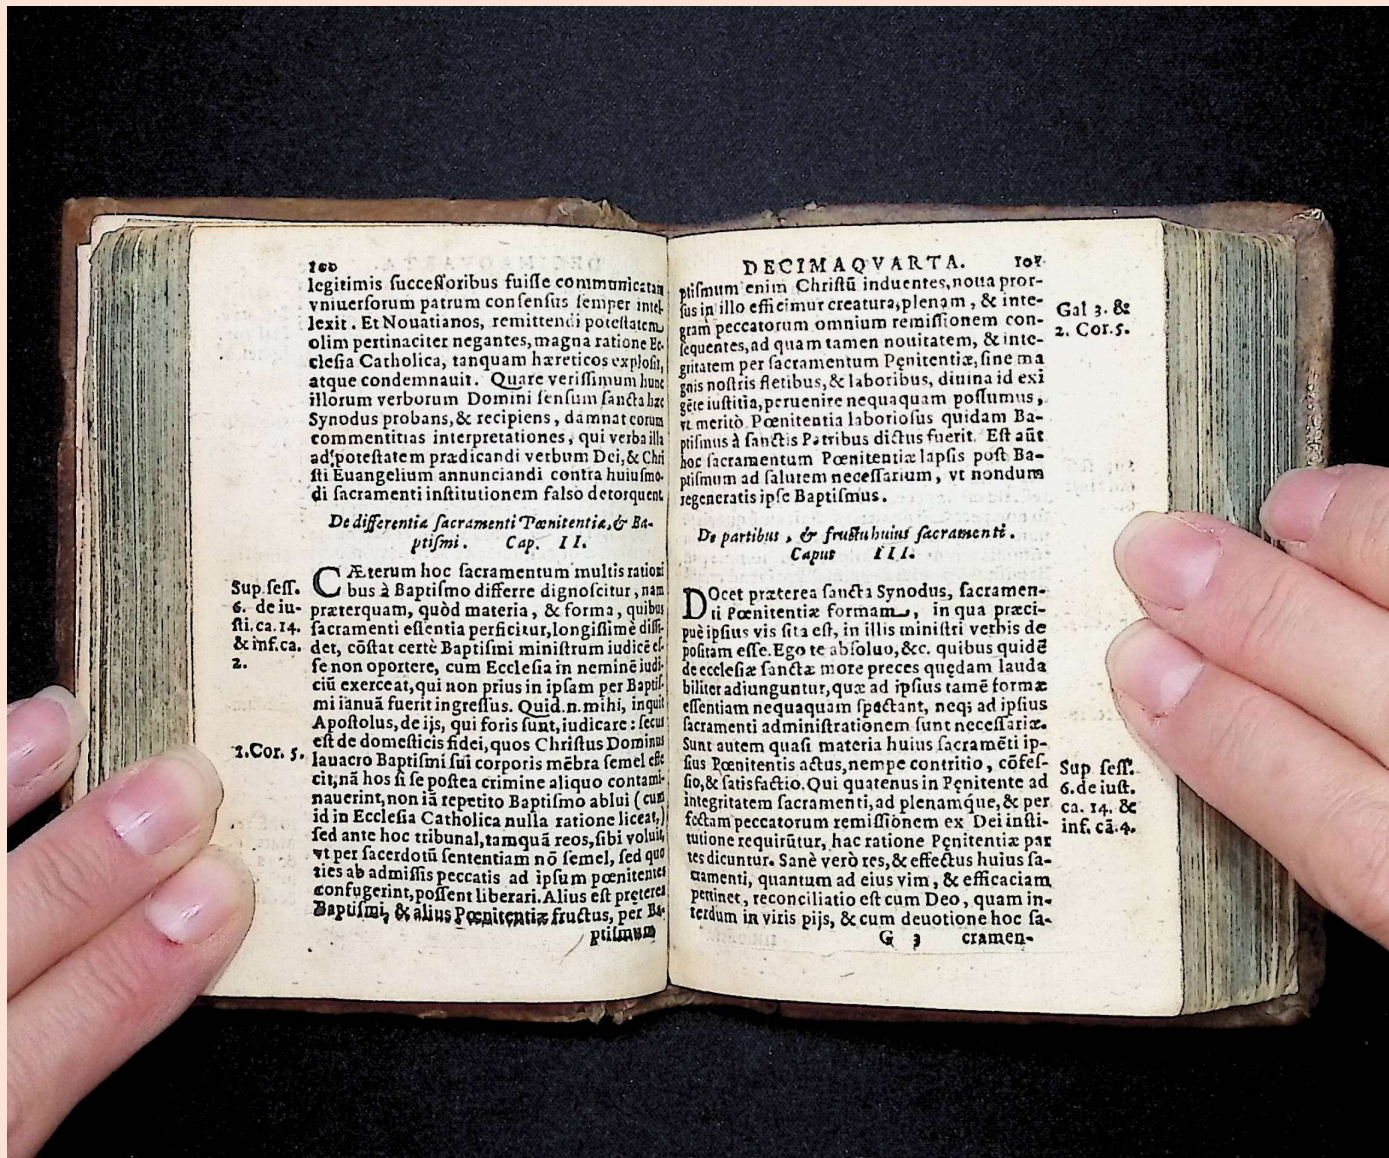 100
legitimis succeſſoribus fuiſſe communicatam
vniuerſorum patrum conſenſus ſemper intel-
lexit. Et Nouatianos, remittendi poteſtatem
olim pertinaciter negantes, magna ratione Ec-
cleſia Catholica, tanquam hæreticos exploſit,
atque condemnauit. Quare veriſſimum hunc
illorum verborum Domini ſenſum ſancta hæc
Synodus probans, & recipiens, damnat eorum
commentitias interpretationes, qui verba illa
ad poteſtatem prædicandi verbum Dei, & Chri
ſti Euangelium annunciandi contra huiuſmo-
di ſacramenti inſtitutionem falsò detorquent.
De differentia ſacramenti Pœnitentiæ, & Ba-
ptiſmi. Cap. II.
CÆterum hoc ſacramentum multis rationi
bus à Baptiſmo differre dignoſcitur, nam
præterquam, quòd materia, & forma, quibus
ſacramenti eſſentia perficitur, longiſſimè diſſi-
det, cōſtat certè Baptiſmi miniſtrum iudicē eſ-
ſe non oportere, cum Eccleſia in neminē iudi-
ciū exerceat, qui non prius in ipſam per Baptiſ-
mi ianuā fuerit ingreſſus. Quid.n.mihi, inquit
Apoſtolus, de ijs, qui foris ſunt, iudicare: ſecus
eſt de domeſticis fidei, quos Chriſtus Dominus
lauacro Baptiſmi ſui corporis mēbra ſemel effe
cit, nā hos ſi ſe poſtea crimine aliquo contami-
nauerint, non iā repetito Baptiſmo ablui (cum
id in Eccleſia Catholica nulla ratione liceat,)
ſed ante hoc tribunal, tamquā reos, ſibi voluit,
vt per ſacerdotū ſententiam nō ſemel, ſed quo
ties ab admiſſis peccatis ad ipſum pœnitentes
confugerint, poſſent liberari. Alius eſt pręterea
Baptiſmi, & alius Pœnitentiæ fructus, per Ba-
ptiſmum
Sup. ſeſſ.
6. de iu-
ſti. ca. 14.
& inf. ca.
2.
1. Cor. 5.
DECIMAQVARTA. 101
ptiſmum enim Chriſtū induentes, noua pror-
ſus in illo efficimur creatura, plenam, & inte-
gram peccatorum omnium remiſſionem con-
ſequentes, ad quam tamen nouitatem, & inte-
gritatem per ſacramentum Pęnitentiæ, ſine ma
gnis noſtris fletibus, & laboribus, diuina id exi
gēte iuſtitia, peruenire nequaquam poſſumus,
vt meritò Pœnitentia laborioſus quidam Ba-
ptiſmus à ſanctis Patribus dictus fuerit. Eſt aūt
hoc ſacramentum Pœnitentiæ lapſis poſt Ba-
ptiſmum ad ſalutem neceſſarium, vt nondum
regeneratis ipſe Baptiſmus.
De partibus, & fructu huius ſacramenti.
Caput III.
DOcet præterea ſancta Synodus, ſacramen-
ti Pœnitentiæ formam, in qua præci-
puè ipſius vis ſita eſt, in illis miniſtri verbis de
poſitam eſſe. Ego te abſoluo, &c. quibus quidē
de eccleſiæ ſanctæ more preces quędam lauda
biliter adiunguntur, quæ ad ipſius tamē formæ
eſſentiam nequaquam ſpectant, neq; ad ipſius
ſacramenti adminiſtrationem ſunt neceſſariæ.
Sunt autem quaſi materia huius ſacramēti ip-
ſius Pœnitentis actus, nempe contritio, cōfeſ-
ſio, & ſatisfactio. Qui quatenus in Pęnitente ad
integritatem ſacramenti, ad plenamq́ue, & per
fectam peccatorum remiſſionem ex Dei inſti-
tutione requirūtur, hac ratione Pęnitentiæ par
tes dicuntur. Sanè verò res, & effectus huius ſa-
cramenti, quantum ad eius vim, & efficaciam
pertinet, reconciliatio eſt cum Deo, quam in-
terdum in viris pijs, & cum deuotione hoc ſa-
G 3 cramen-
Gal 3. &
2. Cor. 5.
Sup. ſeſſ.
6. de iuſt.
ca. 14. &
inf. cā. 4.